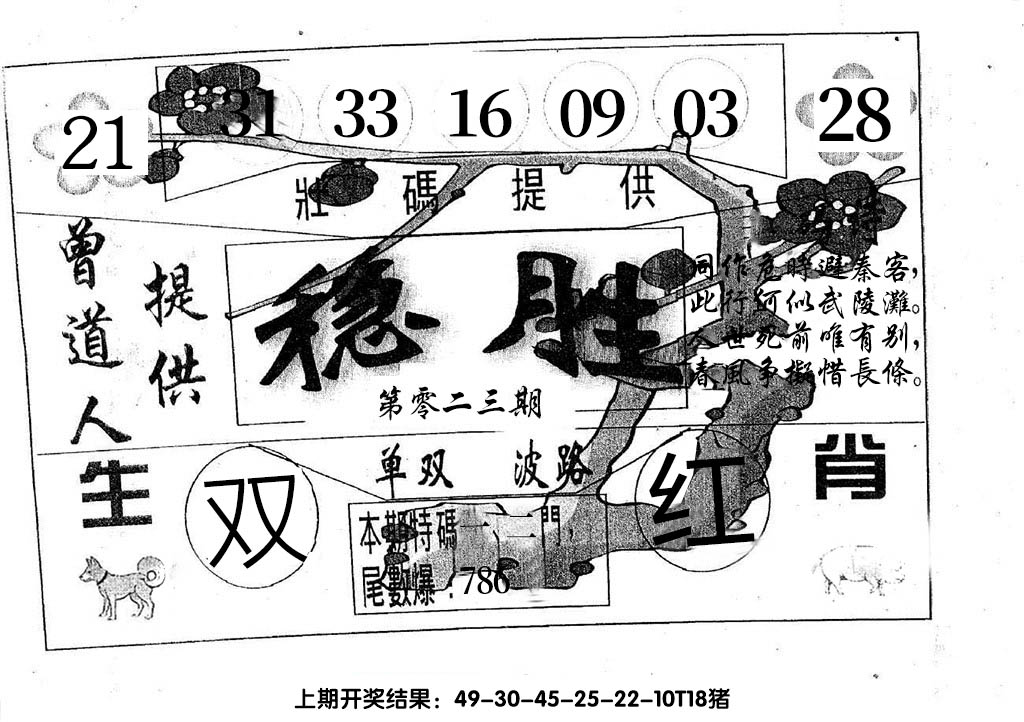 21 31 33 16 09 03 28
壯碼提供
特
曾道人
提供
稳胜
第零二三期
同作危時避秦客，
此行何似武陵灘。
世死前唯有别，
春風争擬惜長條。
单双 波路
生肖
双
红
本期特碼一、二門，
尾數爆：786
上期开奖结果：49-30-45-25-22-10T18猪